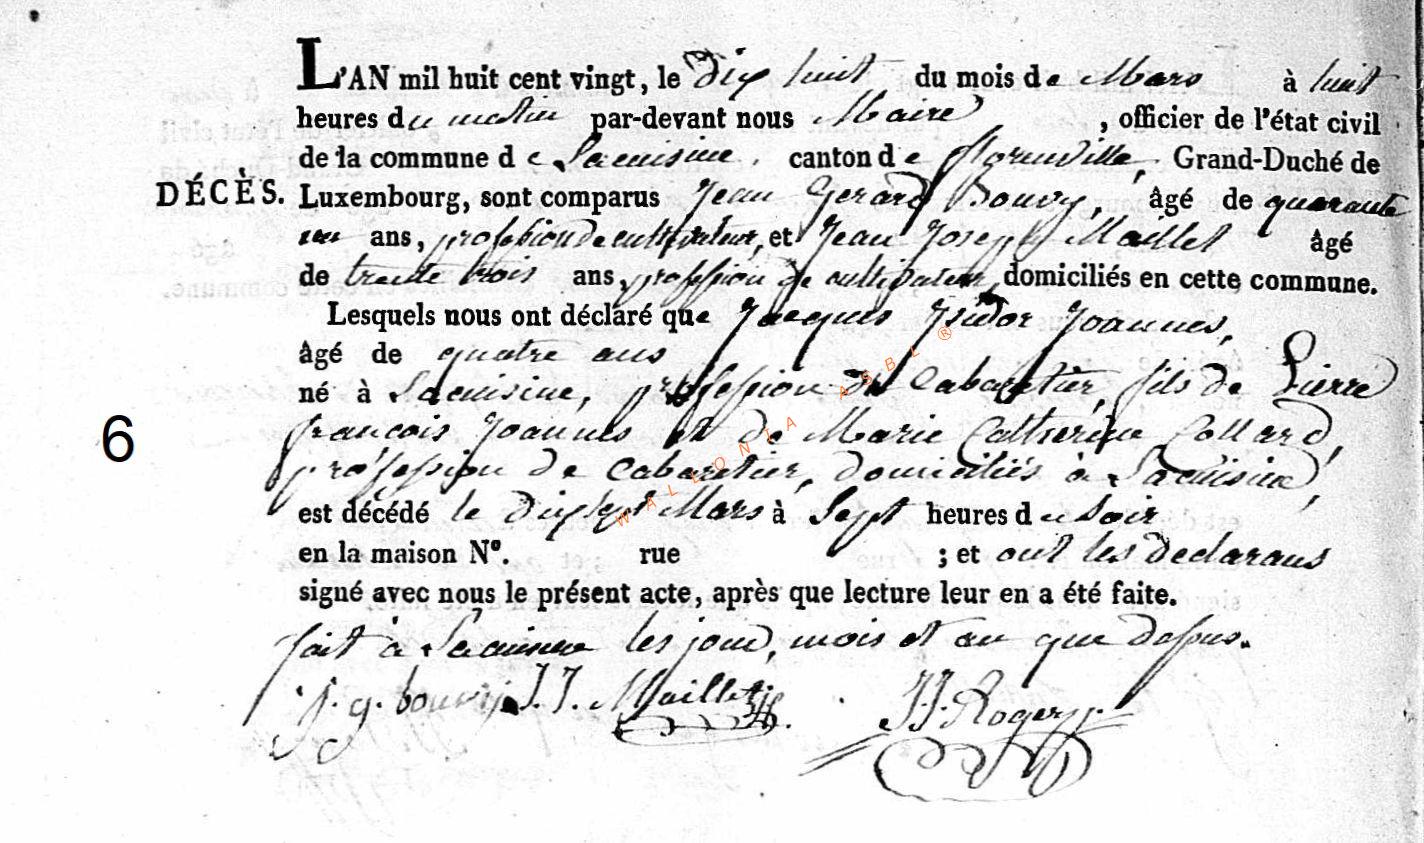 L'AN mil huit cent vingt, le dix huit du mois de Mars à huit
heures du matin par-devant nous Maire, officier de l'état civil
de la commune de Lacuisine, canton de florenville, Grand-Duché de
DÉCÈS. Luxembourg, sont comparus Jean Gerard Bouvy, âgé de quarante
un ans, profession de cultivateur, et Jean Joseph Maillet âgé
de trente trois ans, profession de cultivateur, domiciliés en cette commune.
Lesquels nous ont déclaré que Jacques Isidor Joannes,
âgé de quatre ans
né à Lacuisine, profession de Cabaretier, fils de Pierre
6 françois Joannes et de Marie Catherine Collard,
profession de Cabaretier, domiciliés à Lacuisine,
est décédé le Dix sept Mars à Sept heures du Soir
en la maison N°. rue ; et ont les declarans
signé avec nous le présent acte, après que lecture leur en a été faite.
fait à Lacuisine les jour, mois et an que dessus.
J. g. bouvy J. J. Maillet J. J. Roger
WALLONIA ASBL ®